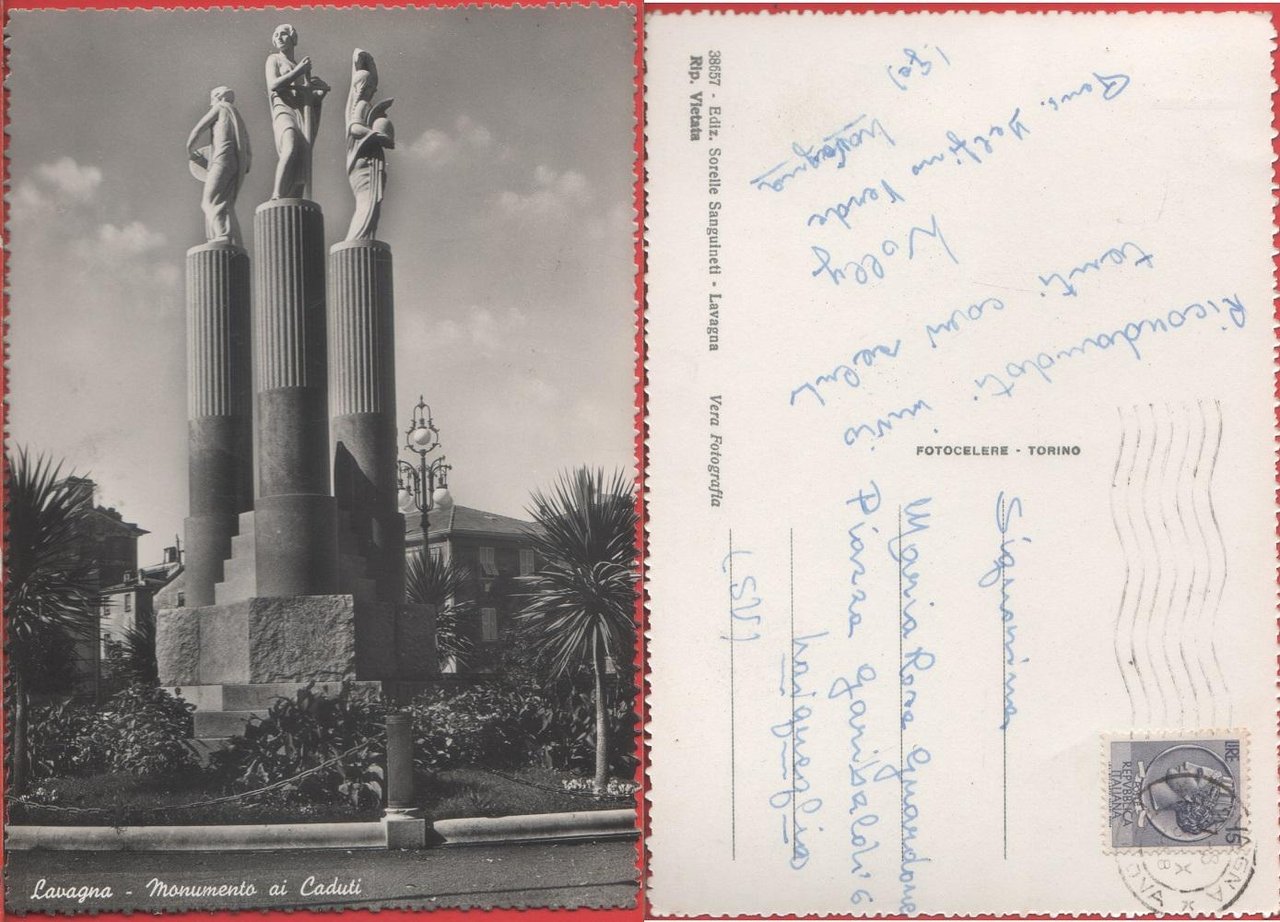 Lavagna - Monumento ai Caduti
38657 - Ediz. Sorelle Sanguineti - Lavagna Vera Fotografia
Rip. Vietata
FOTOCELERE - TORINO
Ricordandoti invio
tanti cari saluti
Delfino Verde
Lavagna
(Ge)
Signorina
Maria Rosa Guardone
Piazza Garibaldi 6
Laigueglia
(SV)
LIRE 15
REPVBBLICA
ITALIANA